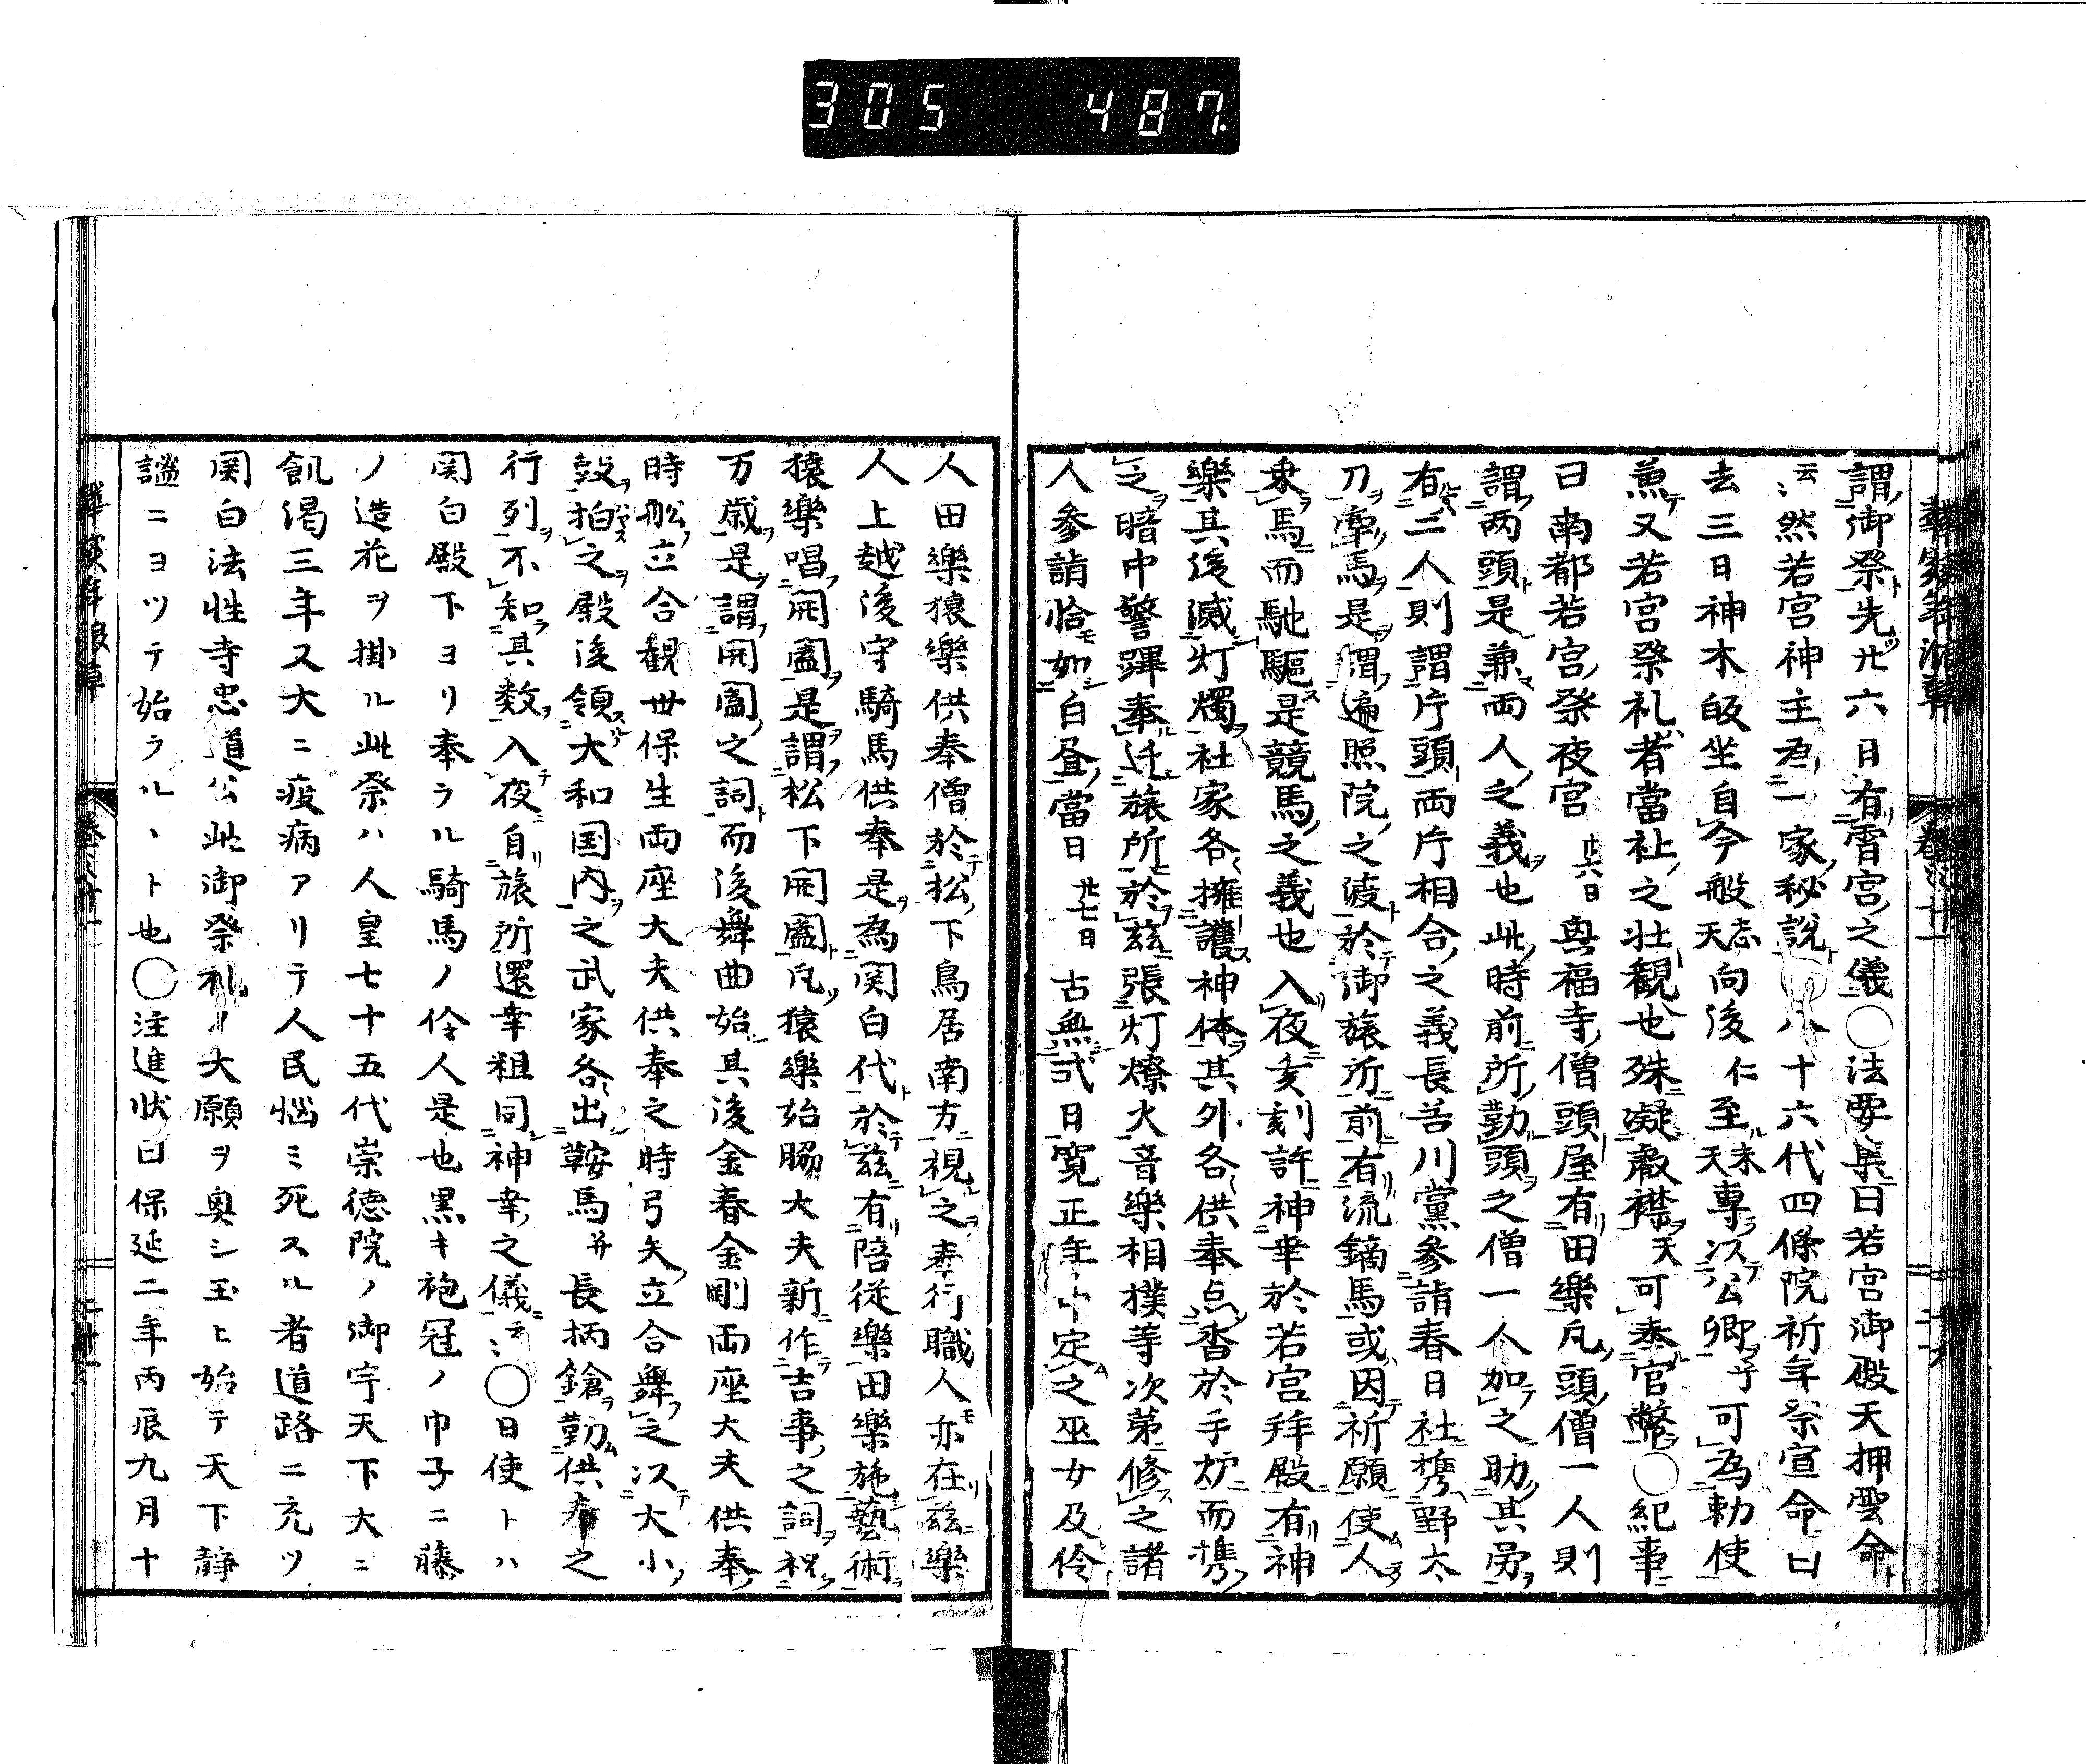 305 487
謂御祭先廿六日有宵宮之儀〇法要集曰若宮御殿天押雲命
云〻然若宮神主君一家秘説八十六代四條院祈年祭宣命曰
去三日神木皈坐自今般志天向後仁至末天專以公卿乎可為勅使
兼又若宮祭礼者當社之壮觀也殊凝叡襟天可奉官幣〇紀事
曰南都若宮祭夜宮廿六日興福寺僧頭屋有田樂凡頭僧一人則
謂両頭是兼両人之義也此時前所勤頭之僧一人加之助其労
有二人則謂片頭両片相合之義長谷川黨参詣春日社携野太
刀牽馬是謂遍照院之渡於御旅所前有流鏑馬或因祈願使人
乗馬而馳驅是競馬之義也入夜亥刻許神幸於若宮拝殿有神
樂其後滅灯燭社家各擁護神体其外各供奉点沓於手炊而携
之暗中警蹕奉迁旅所於茲張灯燎火音樂相撲等次第修之諸
人参詣恰如白昼當日廿七日古無弐日寛正年中定之巫女及伶
人田樂猿樂供奉僧於松下鳥居南方視之奉行職人亦在茲樂
人上越後守騎馬供奉是為関白代於茲有陪従樂田樂施藝術
猿樂唱開闔是謂松下開闔凡猿樂始脇大夫新作吉事之詞祝
万歳是謂開闔之詞而後舞曲始其後金春金剛両座大夫供奉
時舩立合觀世保生両座大夫供奉之時弓矢立合舞之以大小
鼓拍之殿後領大和国内之武家各出鞍馬并長柄鎗勤供奉之
行列不知其数入夜自旅所還幸粗同神幸之儀云〻〇日使トハ
関白殿下ヨリ奉ラル騎馬ノ伶人是也黒キ袍冠ノ巾子ニ藤
ノ造花ヲ掛ル此祭ハ人皇七十五代崇徳院ノ御宇天下大ニ
飢渇三年又大ニ疫病アリテ人民悩ミ死スル者道路ニ充ツ
関白法性寺忠道公此御祭礼ノ大願ヲ奥シ玉ヒ始テ天下静
謐ニヨツテ始ラルヽト也〇注進状曰保延二年丙辰九月十